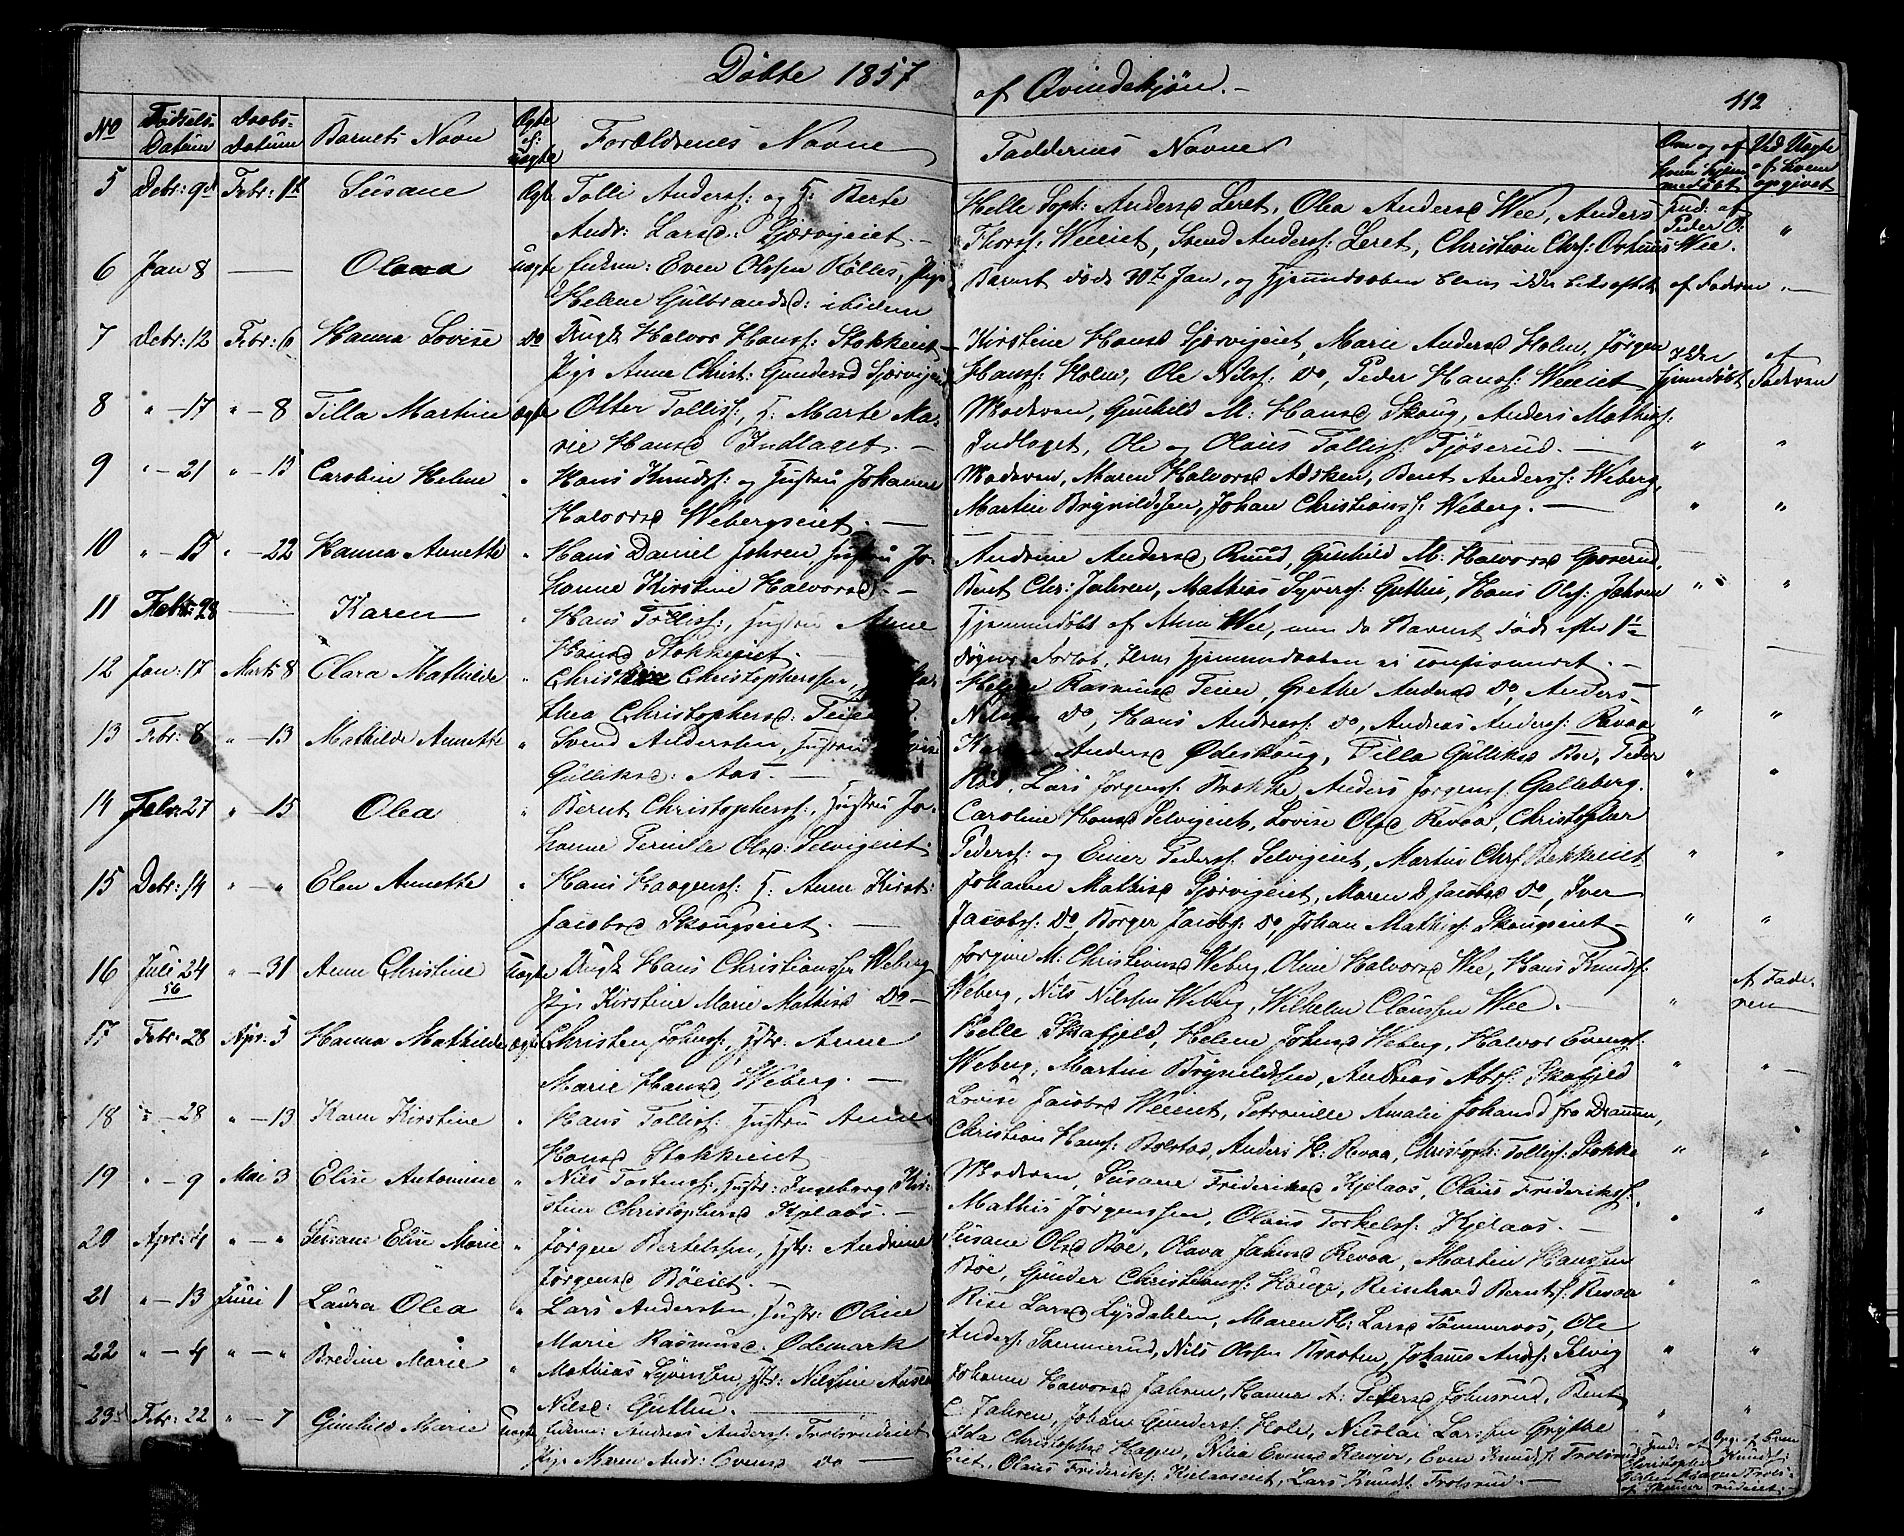 Döbte 1857
af Qvindekjön.
112
No
Födsels-
Datum
Daabs-
Datum
Barnets Navn
Ægte
el:
uægte
Forældrenes Navne
Faddernes Navne
Om og af
hvem hjem-
medöbt
Ved Uægte
af hvem
opgivet
5 Debr: 9de Febr: 1ste Susane Ægte Tolli Anderss: og H: Berte
Andr: Larsd: Sjærvigeiet.
Helle Soph: Andersd Leret, Olea Andersd Wee, Anders
Thorss: Weeeiet, Svend Anderss: Leret, Christian Chrs:
af Peder O:
Wee.
6 Jan 8 — Olava Uægte Even Olssen Kölles, Pige
Helene Gulbrandsd: ibidem
Barnet döde 30te Jan, og Hjemmedaaben blev ikke bekræftet af Faderen
7 Debr: 12 Febr: 6 Hanna Lovise Do Ungk Halvor Hanss: Stokkeeiet
Pige Anne Christ: Gundersd Sjærvigeiet
Kirstine Hansd Sjærvigeiet, Marie Andersd Holm, Jörgen
Hanss: Holm, Ole Nilss: Do, Peder Hanss: Weeeiet
Ikke
hjemdöbt
af
Faderen
8 " - 17 " - 8 Tilla Martine Ægte Otter Tolliss:, H: Marte Ma-
rie Hansd Indlaget.
Moderen, Gunhild M: Hansd Skoug, Anders Mathiss:
Indlaget, Ole og Olaus Tolliss: Fjöserud.
9 " - 21 " - 15 Carolin Helene " Hans Knudss: og Hustru Johanne
Halvorsd Webergseiet.
Moderen, Maren Halvorsd Adsken, Bent Anderss: Weberg,
Martin Brynildssen, Johan Christianss: Weberg.
10 " - 15 " - 22 Hanna Annette " Hans Daniel Jahren, Hustru Jo-
hanne Kirstine Halvorsd
Andrine Andersd Ruud, Gunhild M: Halvorsd Goserud,
Bent Chr: Jahren, Mathias Syverss: Guthu, Hans Olss: Jahren
11 Febr: 28 — Karen " Hans Tolliss:, Hustru Anne
Hansd Stokkeeiet.
Hjemmedöbt af Anne Wee, men da Barnet döde efter 1
Dögns Forlöb, blev Hjemmedaaben ei confirmeret.
12 Jan: 17 Marts 8 Clara Mathilde " Christian Christopherssen,
thea Christophersd: Teien.
Helene Rasmusd Teien, Grethe Andersd Do, Anders
Nilssen Do, Hans Andreass: Do, Andreas Anderss: Revaa
13 Febr: 8 " - 13 Mathilde Annette " Svend Anderssen, Hustru
Gulliksd: Aas.
Andersd Ödeskoug, Tilla Gulliksd Böe, Peder
Röd, Lars Jörgenss: Brække, Anders Jörgenss: Galleberg.
14 Febr: 27 " - 15 Olea " Bernt Christopherss:, Hustru Jo-
hanne Pernille Olsd: Selvigeiet.
Caroline Hansd Selvigeiet, Lovise Olsd Revaa, Christopher
Pederss: og Einer Pederss: Selvigeiet, Martin Chrs: Bekkeeiet
15 Debr: 14 " - " Elen Annette " Hans Haagenss: H: Anne Kirst:
Jacobsd Skougseiet.
Johanne Mathisd Sjærvigeiet, Maren D Jacobsd Do, Iver
Jacobss: Do Börger Jacobss: Do, Johan Mathiss: Skougseiet
16 Juli 24
56
" - 31 Anne Christine Uægte Ungk Hans Christianssen Weberg
Pige Kirstine Marie Mathisd Do
Jörgine M: Christiansd Weberg, Oline Halvorsd Wee, Hans Knudss:
Weberg, Nils Nilssen Weberg, Wilhelm Claussen Wee.
Af Fade-
ren
17 Febr: 28 Apr: 5 Hanna Mathilde Ægte Christen Johnss:, Hstr: Anne
Marie Hansd Weberg.
Helle Skafjeld, Helene Johnsd Weberg, Halvor Evenss:
Weberg, Martin Brynildssen, Andreas Abrs: Skafjeld
18 " - 28 " - 13 Karen Kirstine " Hans Tolliss: Hustru Anne
Hansd Stokkeeiet
Lovise Jacobsd Weeeiet, Petronille Amalie Johansd fra Dramm,
Christian Hanss: Bolstad, Anders H: Revaa, Christoph: Tolliss: Stokke
19 " - 9 Mai 3 Elise Antonine " Nils Tostenss: Hustr: Ingeborg Kir-
stine Christophersd Kjelaas.
Moderen, Susane Frideriksd Kjelaas, Olaus Frideriks:
Mathis Jörgenssen, Olaus Torkelss: Kjelaas.
20 Apr: 4 " - " Susane Elise Marie " Jörgen Bertelssen, Hstr: Andrine
Jörgensd Böeiet.
Susane Olsd Böe, Olava Jahnsd Revaa, Martin Hanssen
Böe, Gunder Christianss: Hauge, Reinhard Berntss: Revaa
21 " - 13 Juni 1 Laura Olea " Lars Anderssen, Hustr: Oline
Marie Rasmusd. Ödemark
Rise Larsd Lysdahlen, Maren H: Larsd Tömmeraas, Ole
Anderss: Sommerud, Nils Olssen Braaten, Johannes Andss: Selvig
22 " - 4 " - " Bredine Marie " Mathias Syverssen, Hstr: Nilsine
Nilsd: Guthu.
Johanne Halvorsd Jahren, Hanna A: Pedersd Johnsrud, Bent
C: Jahren, Johan Gunderss: Hole, Nicolai Larssen Grytte
23 Febr: 22 " - 7 Gunhild Marie Uægte Andreas Anderss: Trolsrudeiet
Pige Maren Andr: Evensd Do
Ida Christophd Hagen, Nilia Evensd Revjor, Even Knudss: Trolsrud-
eiet, Olaus Frideriks: Kjelaaseiet, Lars Knudss: Trolsrud.
Opg: af Even
Knudss:
Trols-
rudeiet.